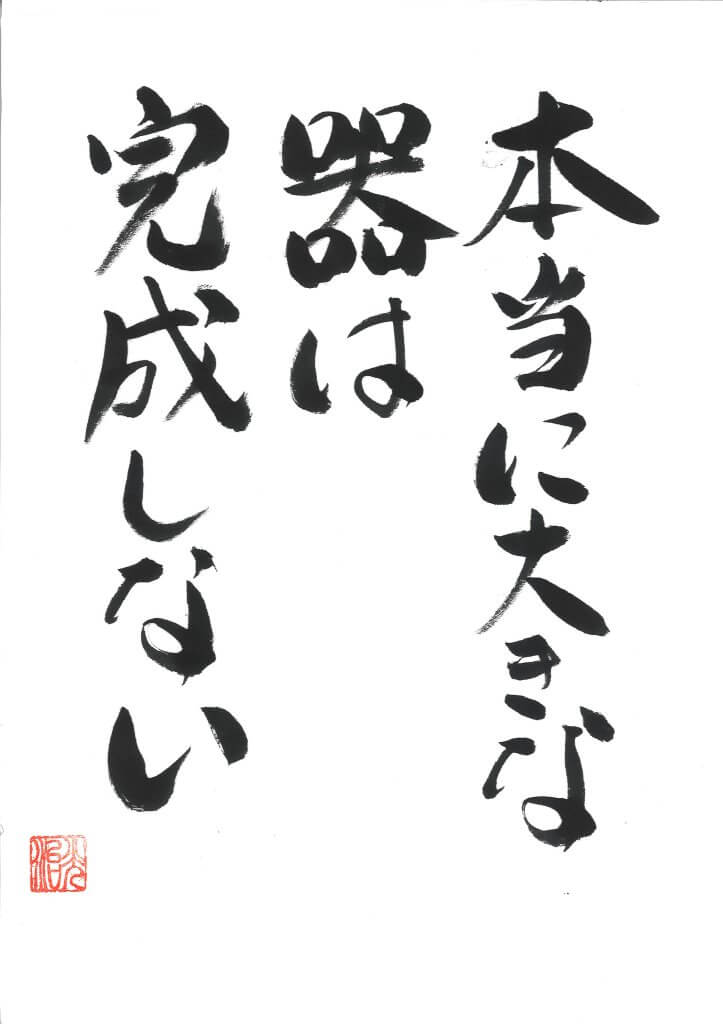 本当に大きな
器は
完成しない